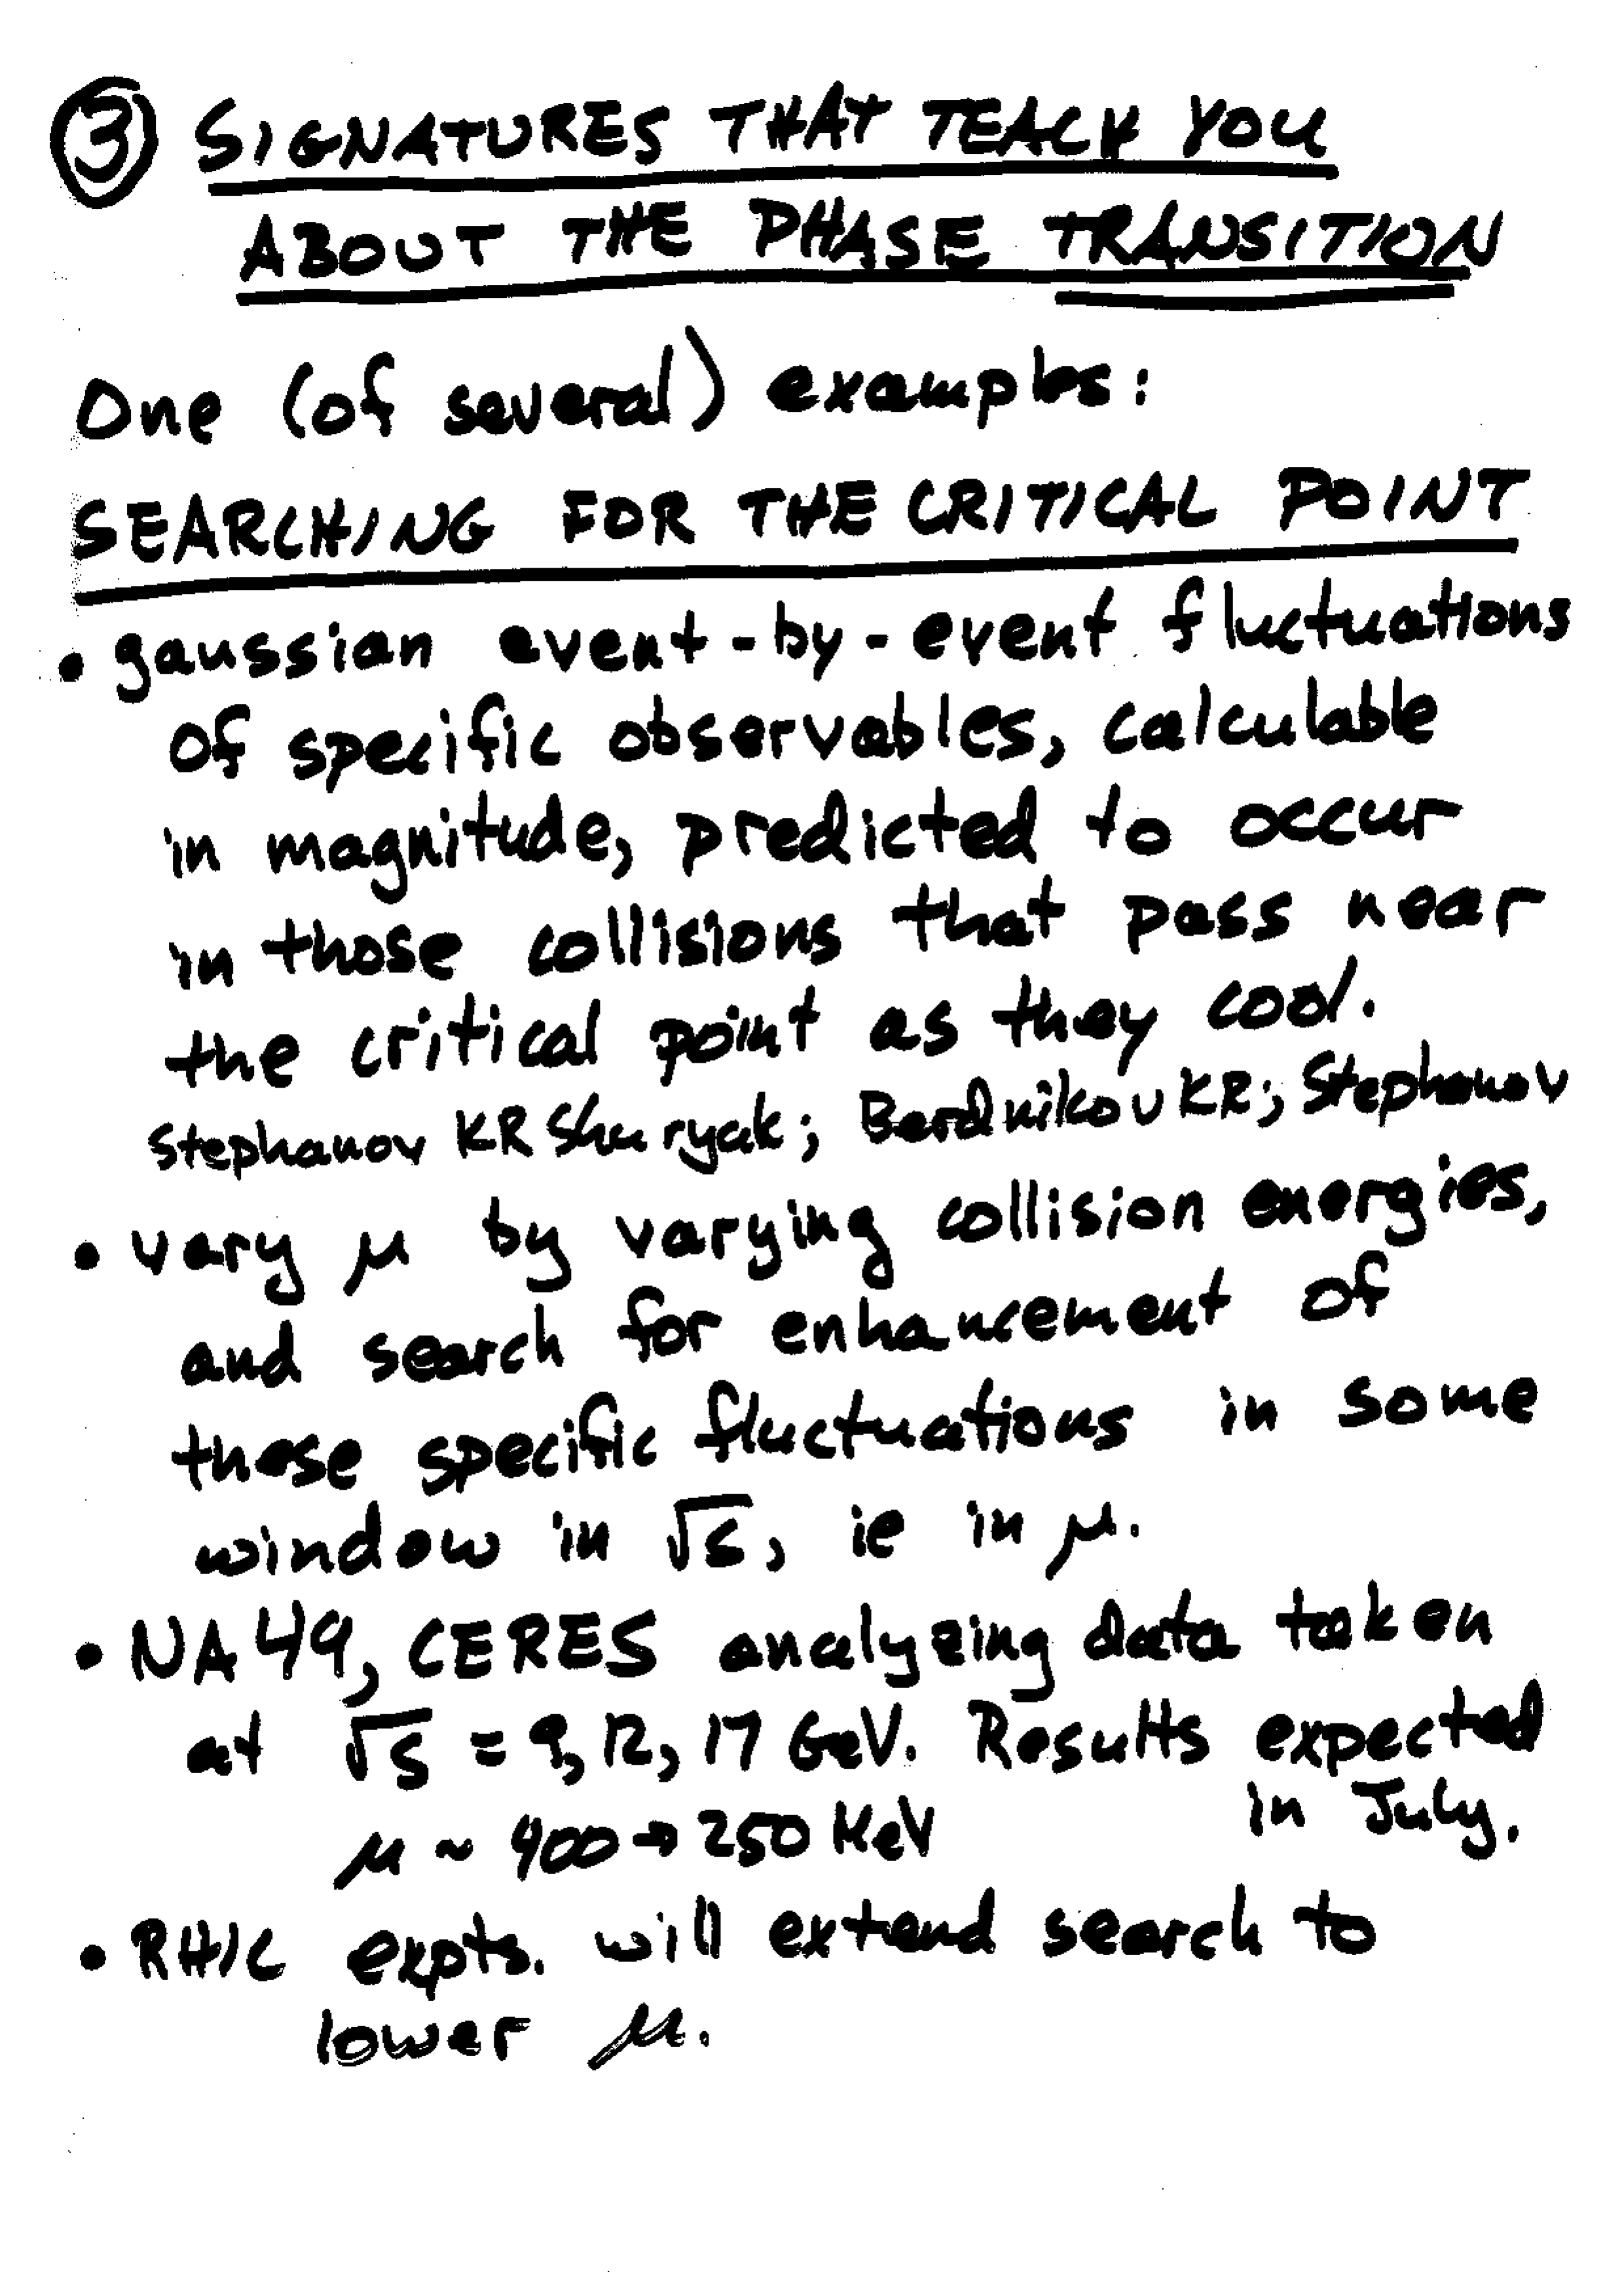 ③ SIGNATURES THAT TEACH YOU
ABOUT THE PHASE TRANSITION
One (of several) examples:
SEARCHING FOR THE CRITICAL POINT
• gaussian event-by-event fluctuations
of specific observables, calculable
in magnitude, predicted to occur
in those collisions that pass near
the critical point as they cool.
Stephanov KR Shuryak; Berdnikov KR; Stephanov
• vary μ by varying collision energies,
and search for enhancement of
these specific fluctuations in some
window in √s, ie in μ.
• NA49, CERES analyzing data taken
at √s = 9, 12, 17 GeV. Results expected
in July.
μ ~ 400 → 250 MeV
• RHIC expts. will extend search to
lower μ.